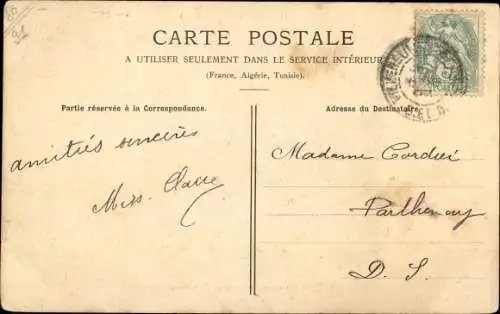 60
91
CARTE POSTALE
A UTILISER SEULEMENT DANS LE SERVICE INTÉRIEUR
(France, Algérie, Tunisie).
Partie réservée à la Correspondance.
Adresse du Destinataire.
amitiés sincères
Miss. Claire
Madame Cordier
Parthenay
D. S.